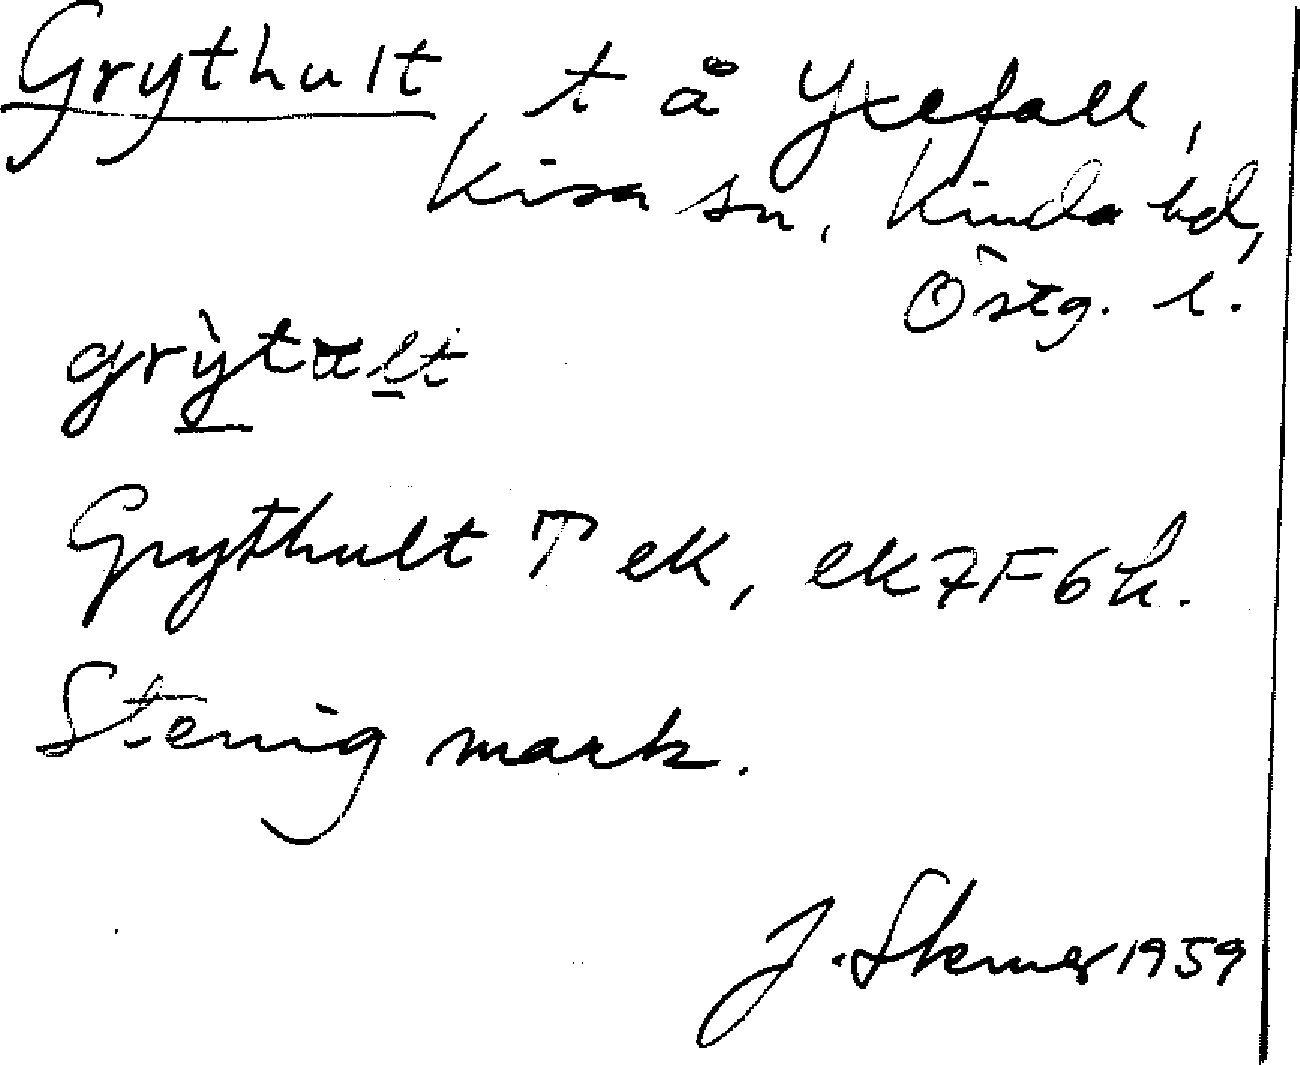 Grythult, t å Yxefall,
Kisa sn, Kinda hd,
Östg. l.
grỳtült
Grythult T ek, ek 7F6h.
Stenig mark.
J. Sterner 1959